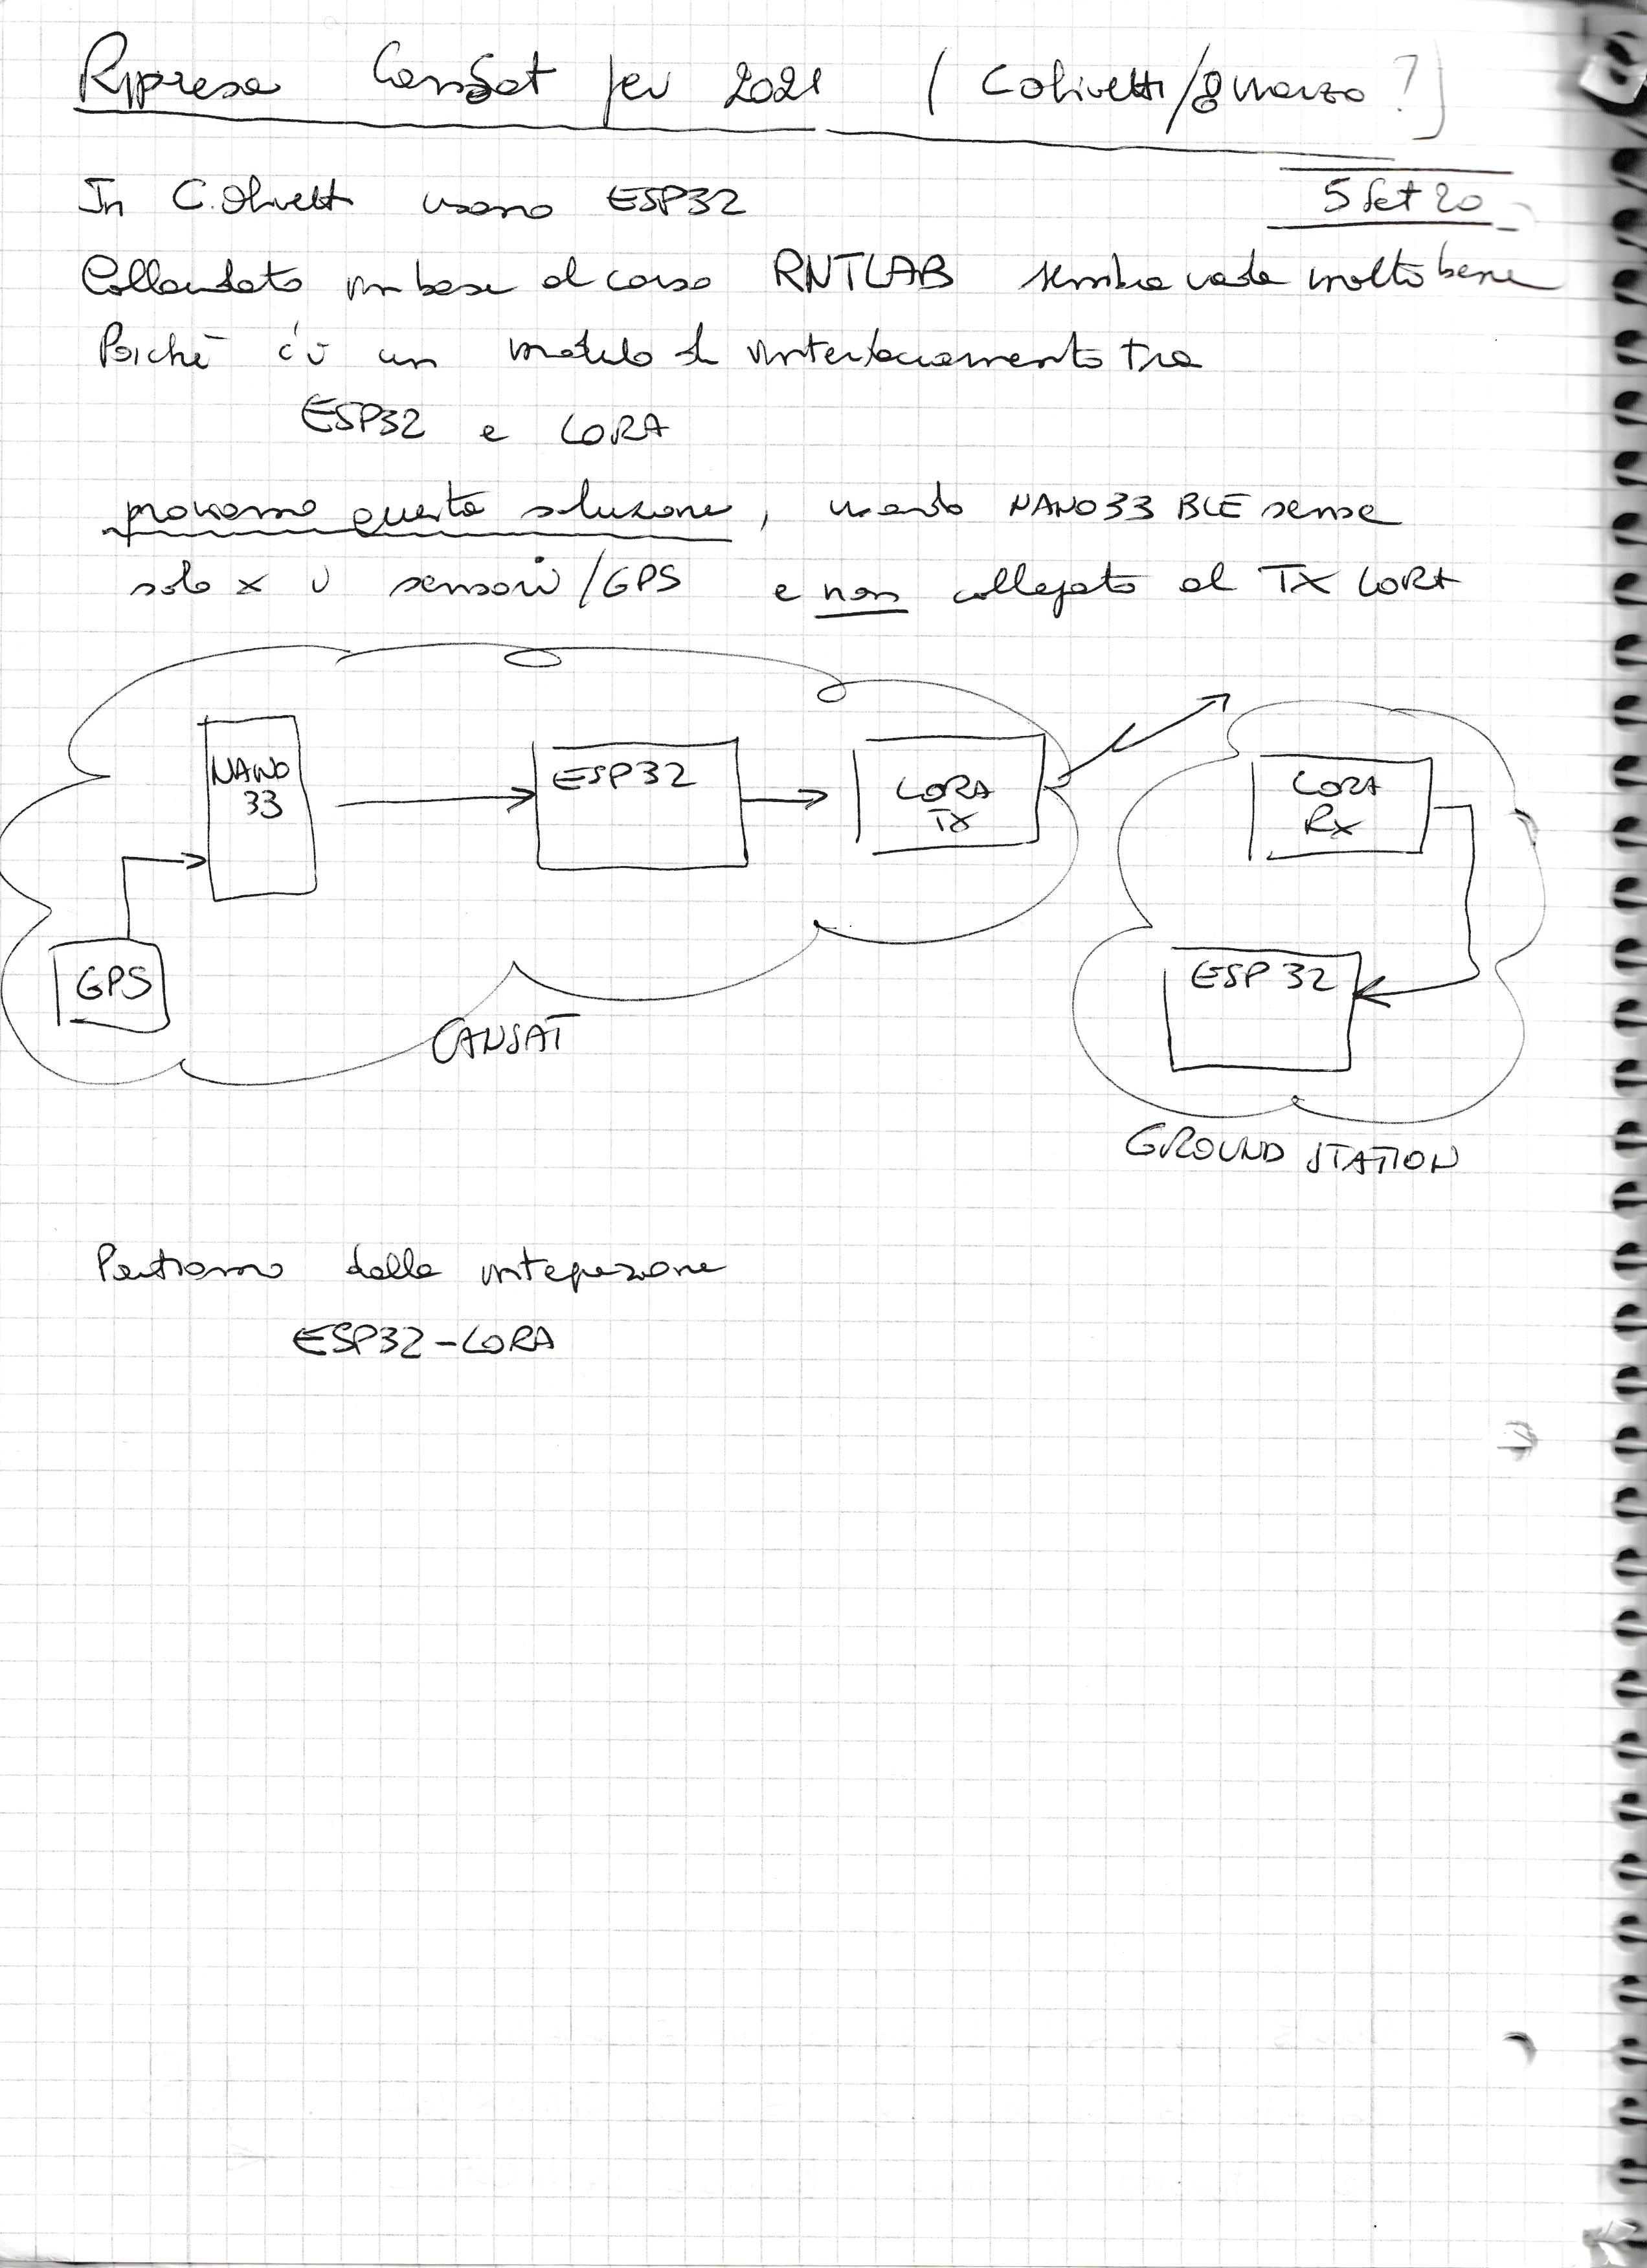 Ripresa CanSat per 2021 ( C olivetti/8 Marzo ? )
5 Set 20
In C. Olivetti usano ESP32
Collaudato in base al corso RNTLAB sembra vada molto bene
Poichè c'è un modulo di interfacciamento tra
ESP32 e LORA
proviamo questa soluzione, usando NANO33 BLE sense
solo x i sensori/GPS e non collegato al TX LORA
NANO
33
ESP32
LORA
TX
LORA
Rx
GPS
ESP 32
CANSAT
GROUND STATION
Partiamo dalla integrazione
ESP32-LORA